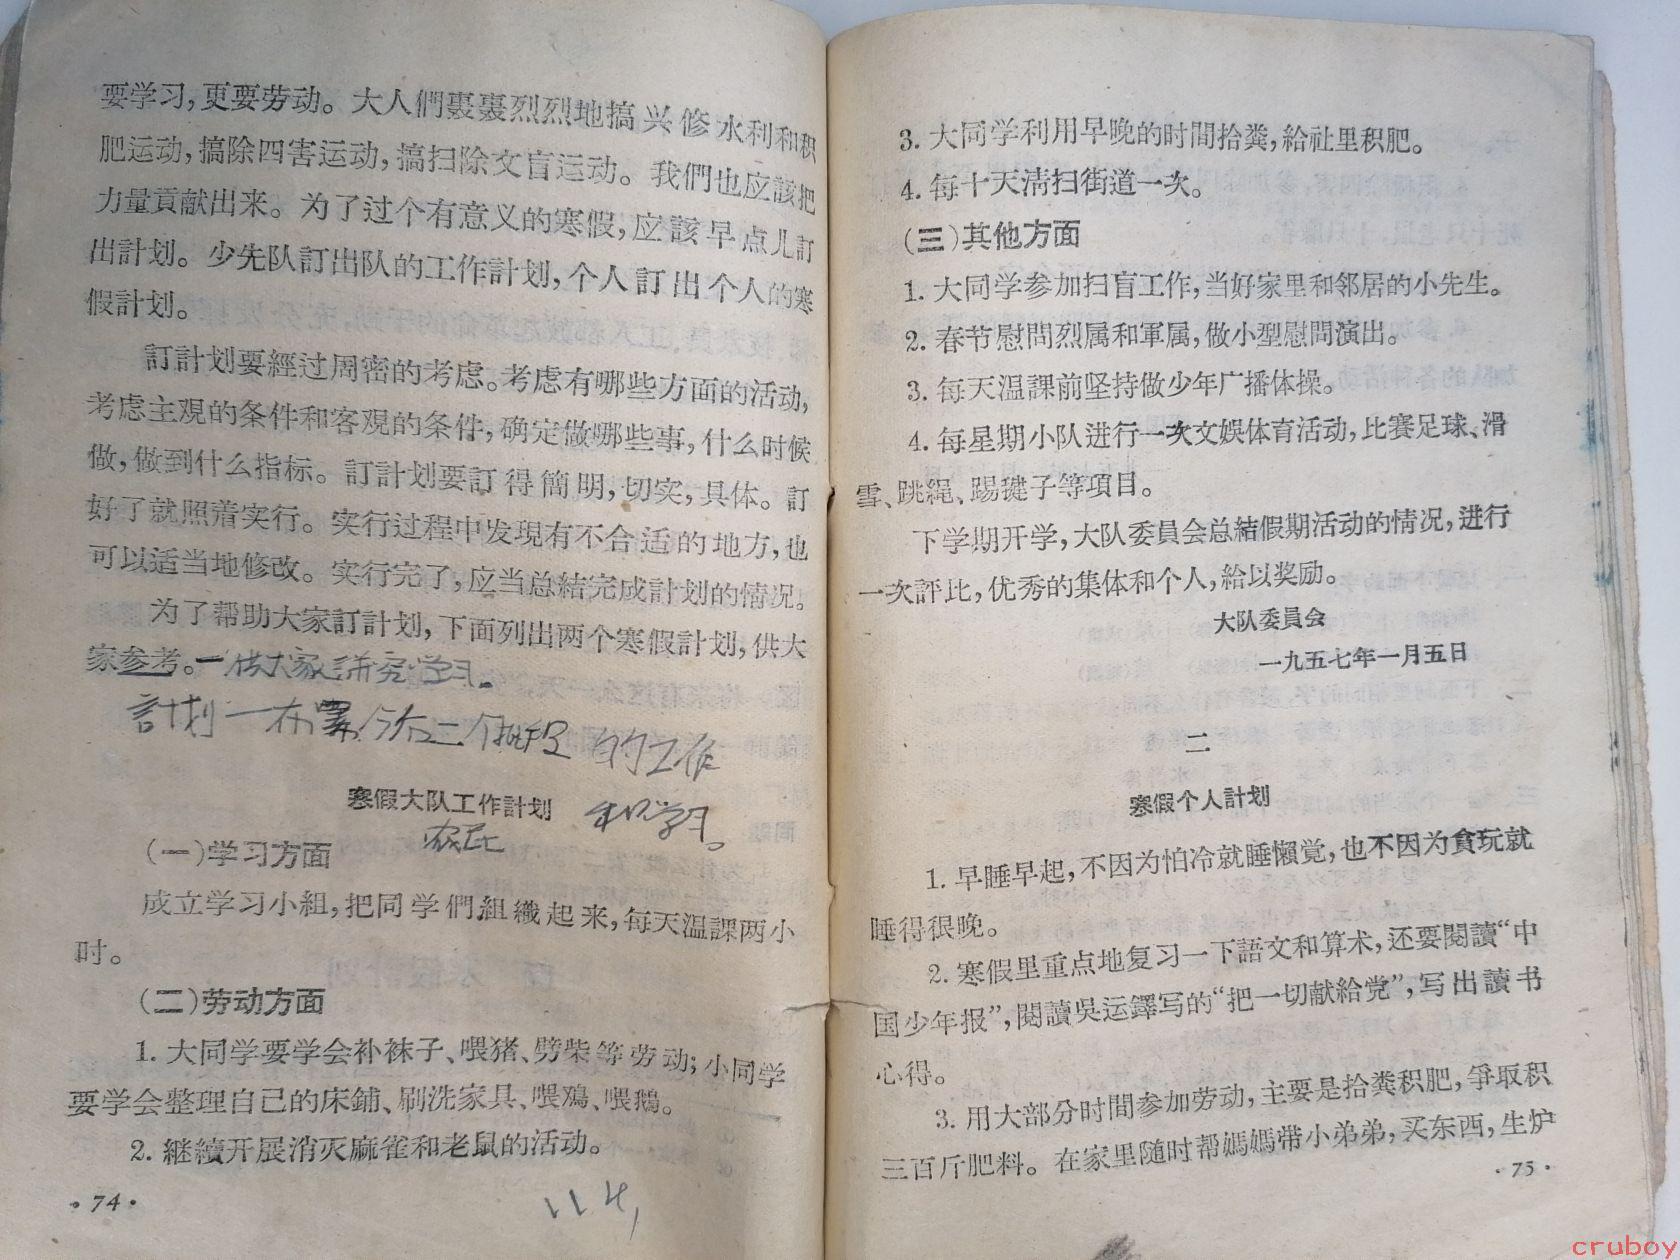 要学习，更要劳动。大人們轰轰烈烈地搞兴修水利和积
肥运动，搞除四害运动，搞扫除文盲运动。我們也应該把
力量貢献出来。为了过个有意义的寒假，应該早点儿訂
出計划。少先队訂出队的工作計划，个人訂出个人的寒
假計划。
訂計划要經过周密的考虑。考虑有哪些方面的活动，
考虑主观的条件和客观的条件，确定做哪些事，什么时候
做，做到什么指标。訂計划要訂得簡明，切实，具体。訂
好了就照着实行。实行过程中发現有不合适的地方，也
可以适当地修改。实行完了，应当总結完成計划的情况。
为了帮助大家訂計划，下面列出两个寒假計划，供大
家参考。一供大家讲究学习。
計划一布署今后一个批段的工作
和学习。
寒假大队工作計划
农民
(一)学习方面
成立学习小組，把同学們組織起来，每天温課两小
时。
(二)劳动方面
1. 大同学要学会补袜子、喂猪、劈柴等劳动；小同学
要学会整理自己的床鋪、刷洗家具、喂鷄、喂鵝。
2. 継續开展消灭麻雀和老鼠的活动。
·74·
3. 大同学利用早晚的时間拾粪，給社里积肥。
4. 每十天清扫街道一次。
(三)其他方面
1. 大同学参加扫盲工作，当好家里和邻居的小先生。
2. 春节慰問烈属和軍属，做小型慰問演出。
3. 每天温課前坚持做少年广播体操。
4. 每星期小队进行一次文娱体育活动，比賽足球、滑
雪、跳繩、踢毽子等項目。
下学期开学，大队委員会总結假期活动的情况，进行
一次評比，优秀的集体和个人，給以奖励。
大队委員会
一九五七年一月五日
二
寒假个人計划
1. 早睡早起，不因为怕冷就睡懒觉，也不因为貪玩就
睡得很晚。
2. 寒假里重点地复习一下語文和算术，还要閱讀“中
国少年报”，閱讀吳运鐸写的“把一切献給党”，写出讀书
心得。
3. 用大部分时間参加劳动，主要是拾粪积肥，爭取积
三百斤肥料。在家里随时帮媽媽带小弟弟，买东西，生炉
·75·
cruboy